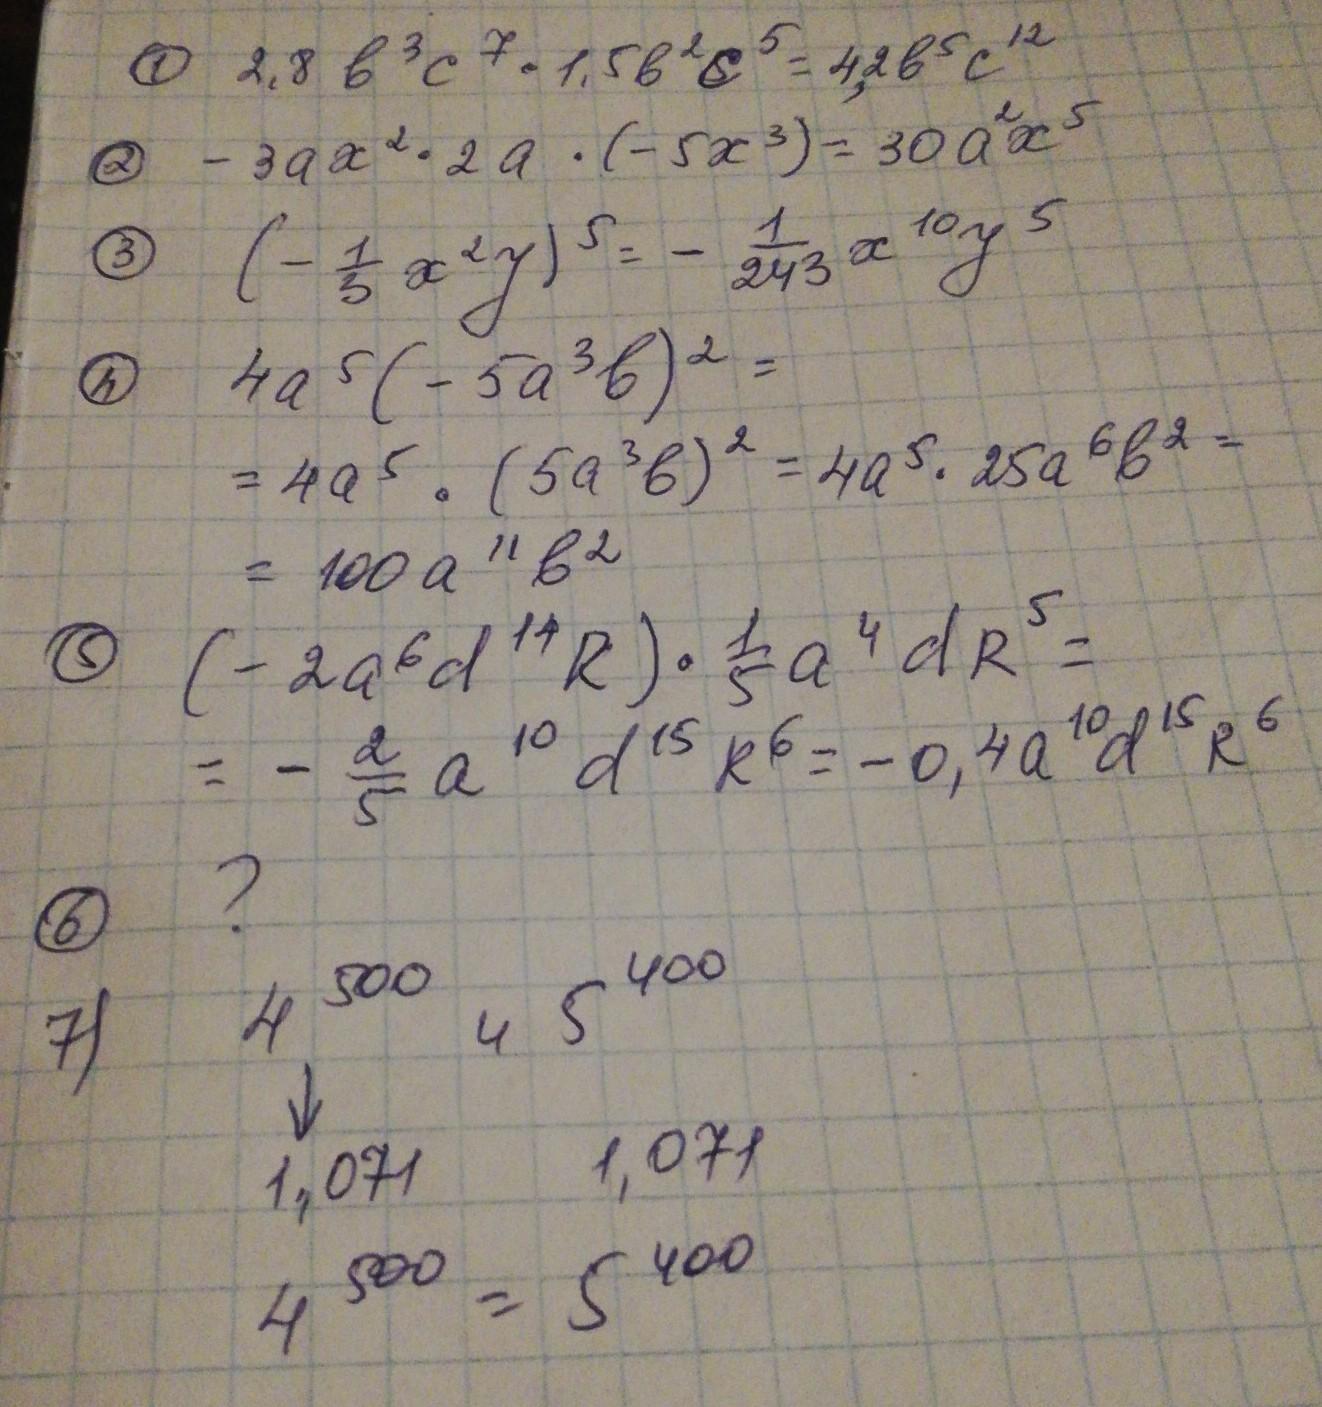 ① 2,8 b³c⁷ · 1,5b²c⁵ = 4,2b⁵c¹²
② -3ax² · 2a · (-5x³) = 30a²x⁵
③ (-1/3 x²y)⁵ = -1/243 x¹⁰y⁵
④ 4a⁵(-5a³b)² =
= 4a⁵ · (5a³b)² = 4a⁵ · 25a⁶b² =
= 100a¹¹b²
⑤ (-2a⁶d¹⁴k) · 1/5 a⁴dk⁵ =
= -2/5 a¹⁰d¹⁵k⁶ = -0,4a¹⁰d¹⁵k⁶
⑥ ?
7) 4⁵⁰⁰ и 5⁴⁰⁰
↓
1,071 1,071
4⁵⁰⁰ = 5⁴⁰⁰